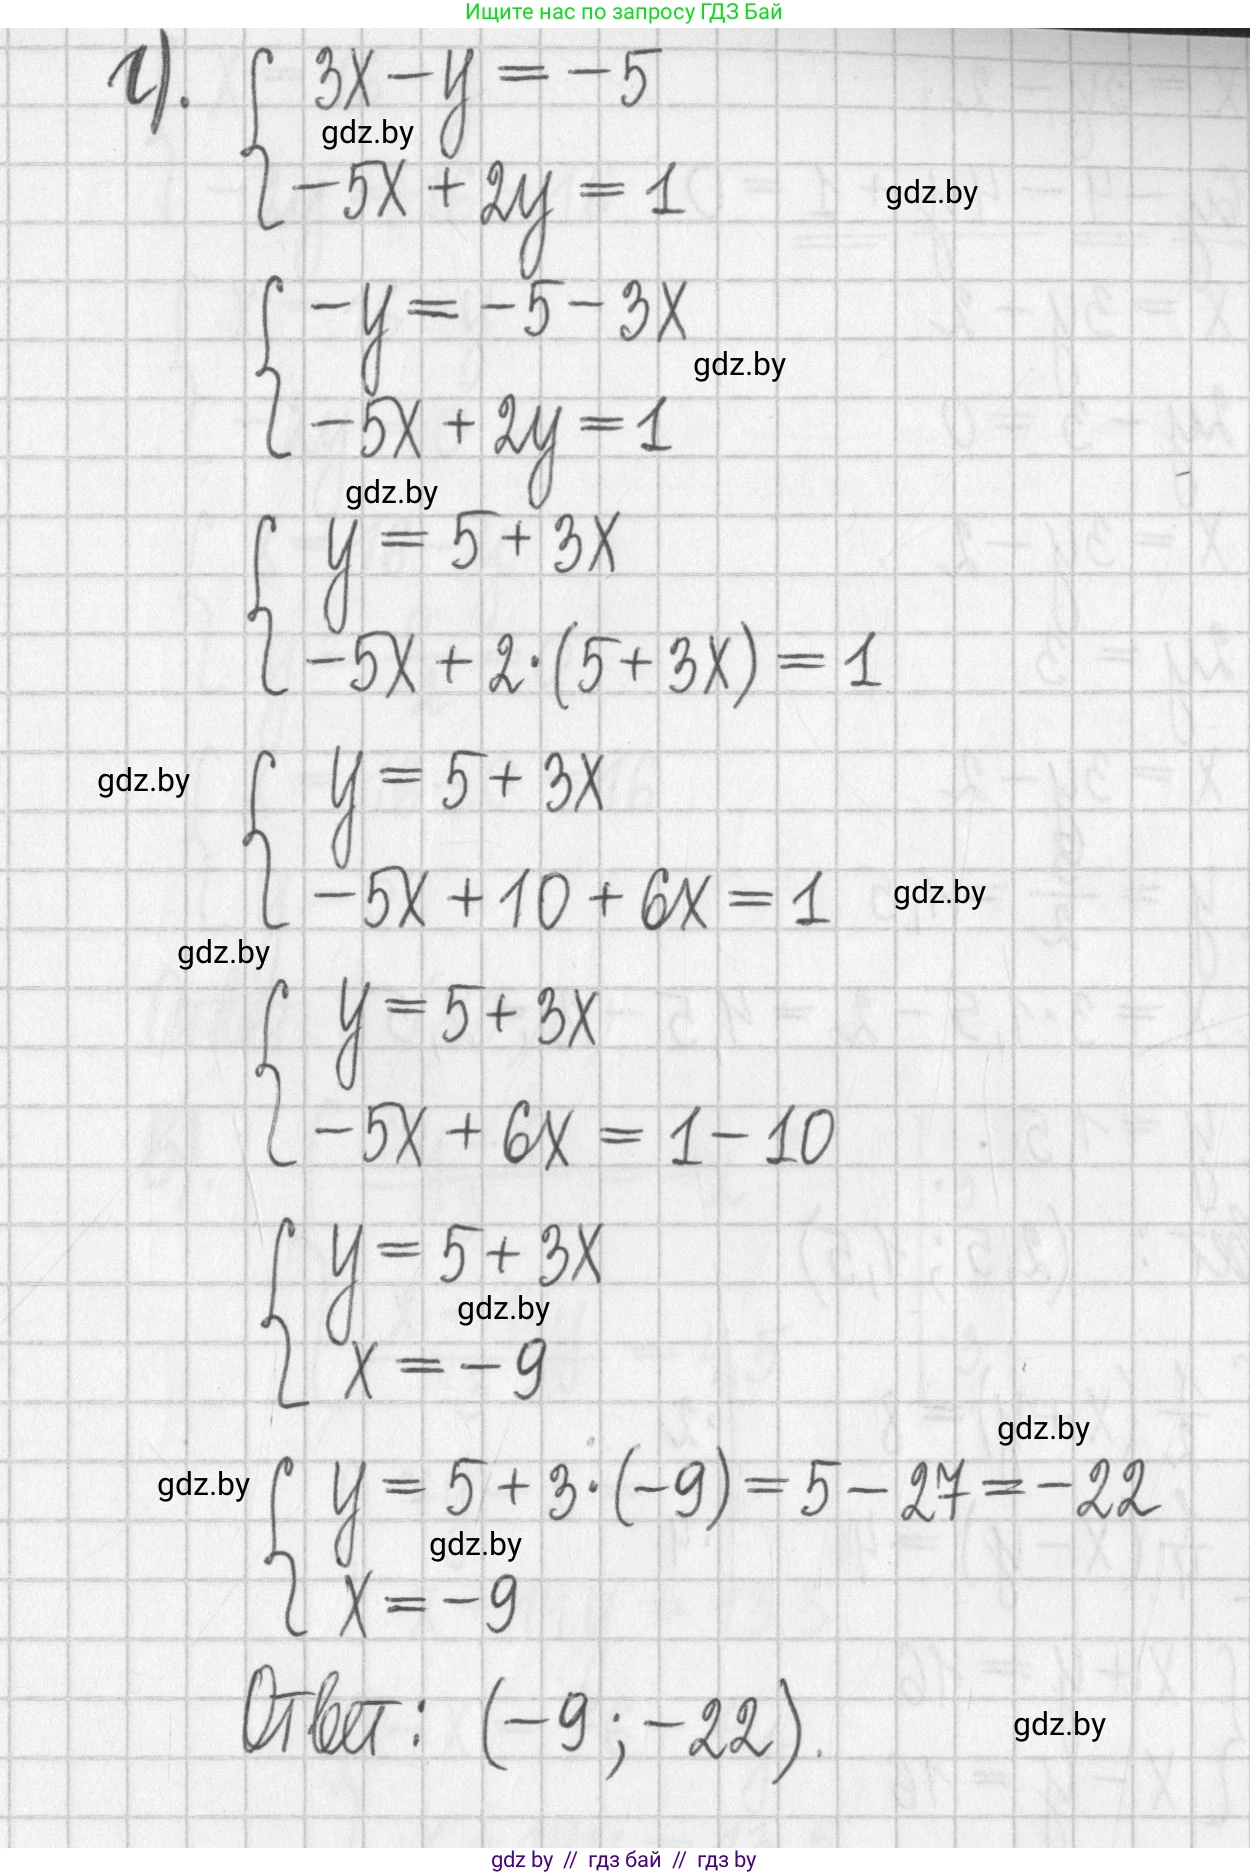 Ищите нас по запросу ГДЗ Бай
г). { 3x - y = -5
gdz.by
-5x + 2y = 1
gdz.by
{ -y = -5 - 3x
gdz.by
-5x + 2y = 1
gdz.by
{ y = 5 + 3x
-5x + 2·(5 + 3x) = 1
{ y = 5 + 3x
gdz.by
-5x + 10 + 6x = 1
gdz.by
gdz.by
{ y = 5 + 3x
-5x + 6x = 1 - 10
{ y = 5 + 3x
gdz.by
x = -9
gdz.by
gdz.by { y = 5 + 3·(-9) = 5 - 27 = -22
gdz.by
x = -9
Ответ: (-9; -22).
gdz.by
gdz by // гдз бай // гдз by